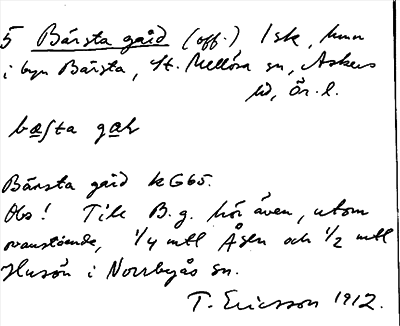 5 Bärsta gård (off.) 1 sk, hmn
i byn Bärsta, St. Mellösa sn, Askers
hd, Ör. l.
bæṣta gæḷ
Bärsta gård kG65.
Obs! Till B. g. hör även, utom
ovanstående, 1/4 mtl Åsen och 1/2 mtl
Husön i Norrbyås sn.
T. Ericsson 1912.